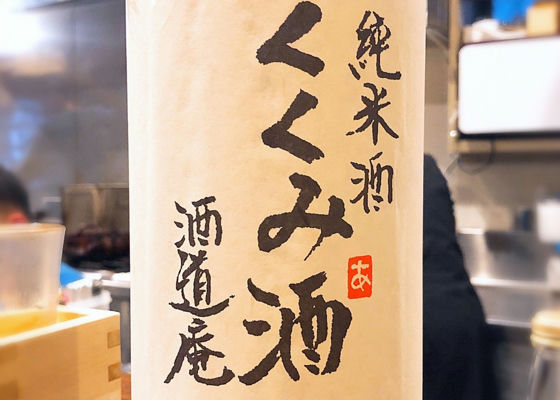 純米酒
あ
くくみ酒
酒道庵